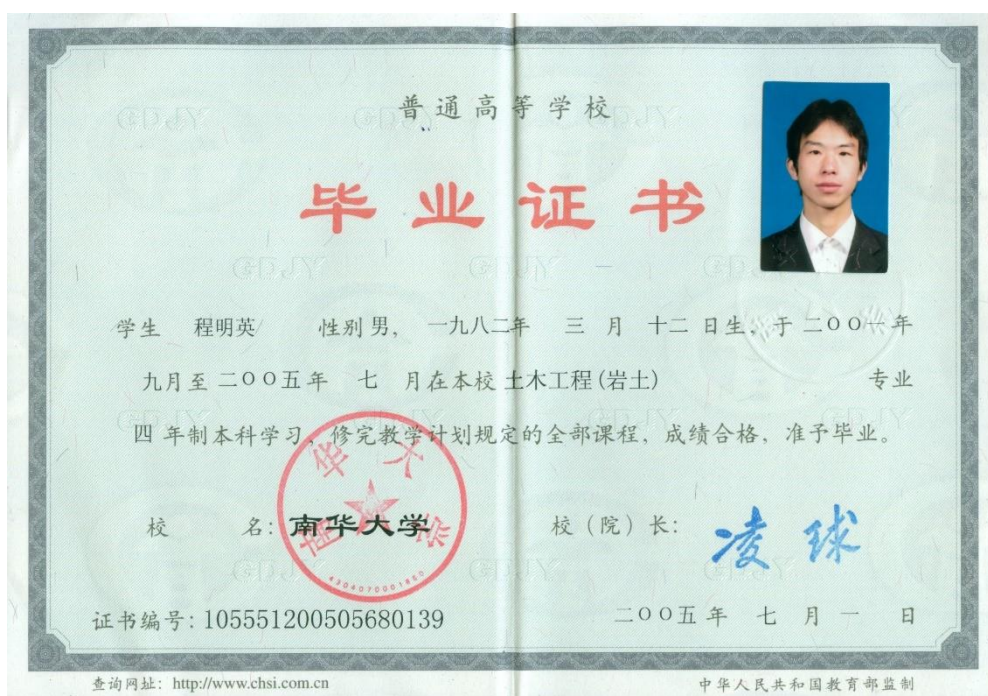 普通高等学校
毕业证书
学生 程明英 性别 男, 一九八二年 三 月 十二 日生, 于 二〇〇一年
九月至 二〇〇五年 七 月在本校 土木工程(岩土) 专业
四 年制本科学习, 修完教学计划规定的全部课程, 成绩合格, 准予毕业。
校 名: 南华大学
校（院）长: 凌球
南华大学
4304070001880
证书编号: 105551200505680139
二〇〇五年 七 月 一 日
查询网址: http://www.chsi.com.cn
中华人民共和国教育部监制